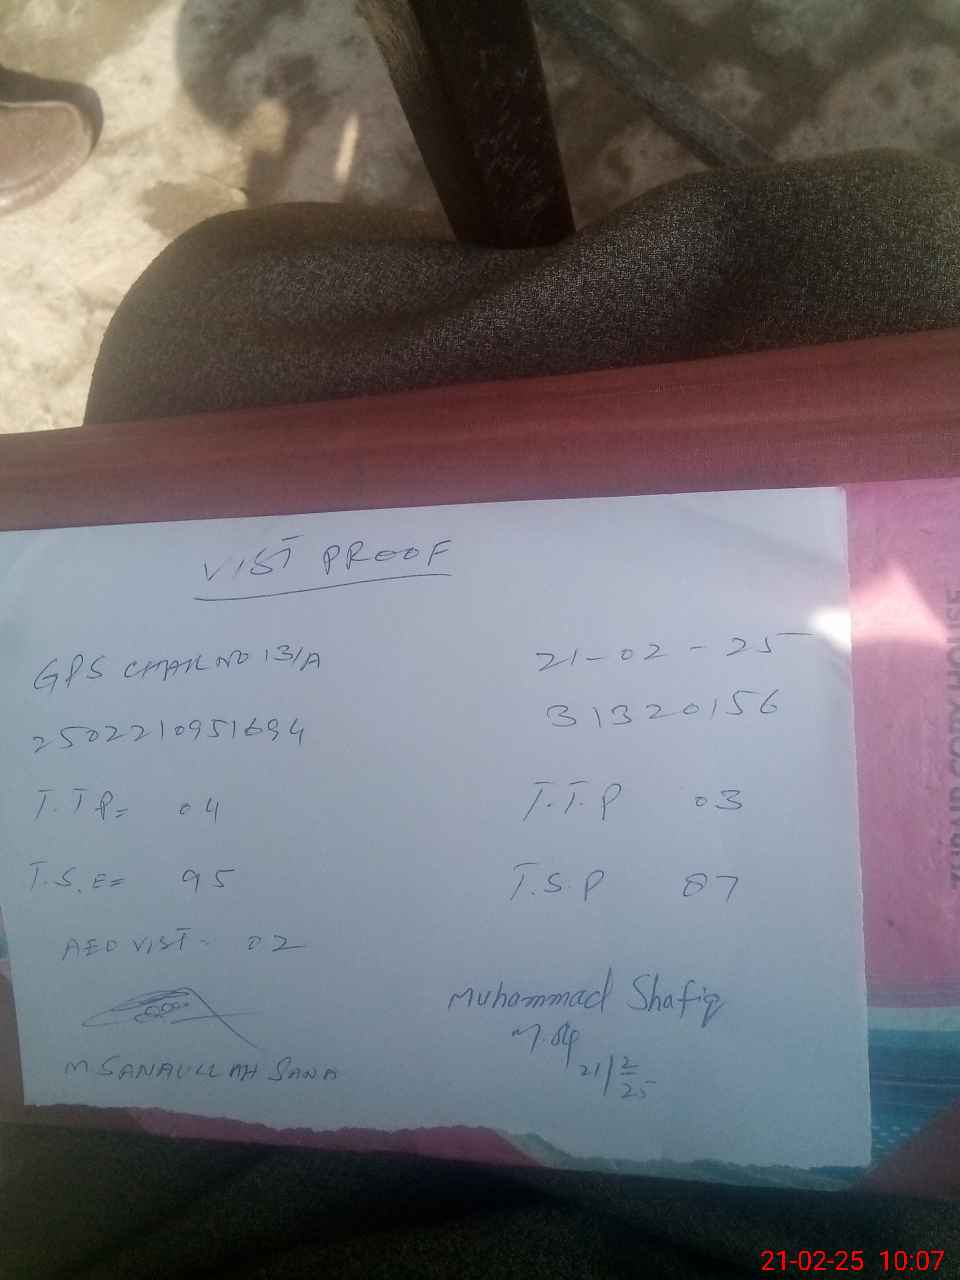 VIST PROOF
GPS CHAK NO 131/A 21-02-25
2502210951694 31320156
T.T P= 04 T.T.P 03
T.S.E= 95 T.S.P 87
AEO VIST- 02
Muhammad Shafiq
M SANAULLAH SANA
21/2/25
COPY HOUSE
21-02-25 10:07